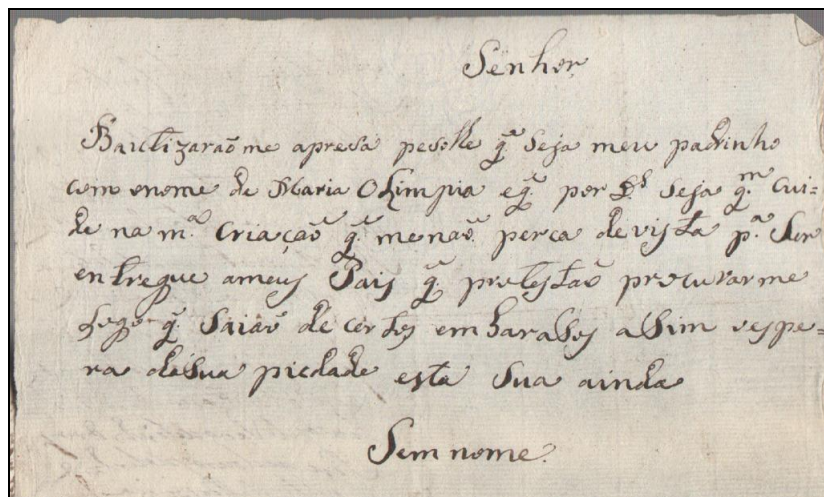 Senhor
Bautizaraõ me apresa pesolhe q̃ Seja meu padrinho
com onome de Maria Olimpia eq̃ por D.s Seja q.m cui=
de na m.a Criaçaõ q̃ menaõ perca devista p.a Ser
entregue ameus Pais q̃ protestaõ procurarme
Logo q̃ Saiaõ de certos embarasos asim oespe=
ra dasua piedade esta Sua ainda
Sem nome.